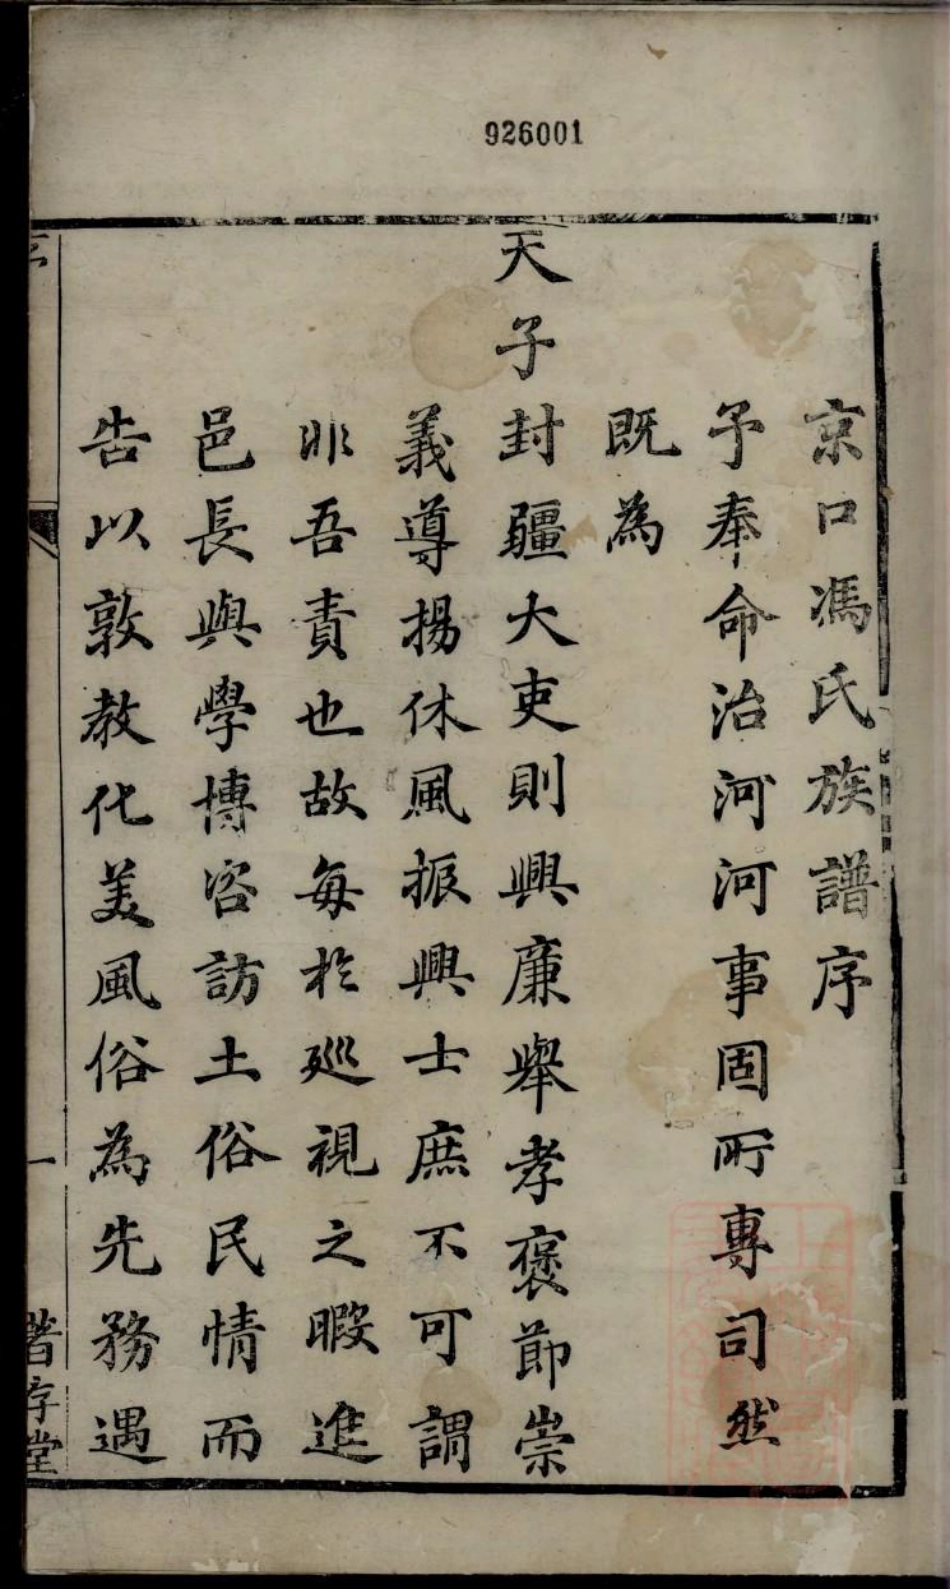 926001
京口馮氏族譜序
予奉命治河河事固所專司然
既為
天子封疆大吏則興廉舉孝褒節崇
義導揚休風振興士庶不可謂
非吾責也故每於巡視之暇進
邑長與學博容訪土俗民情而
告以敦教化美風俗為先務遇
一
存堂